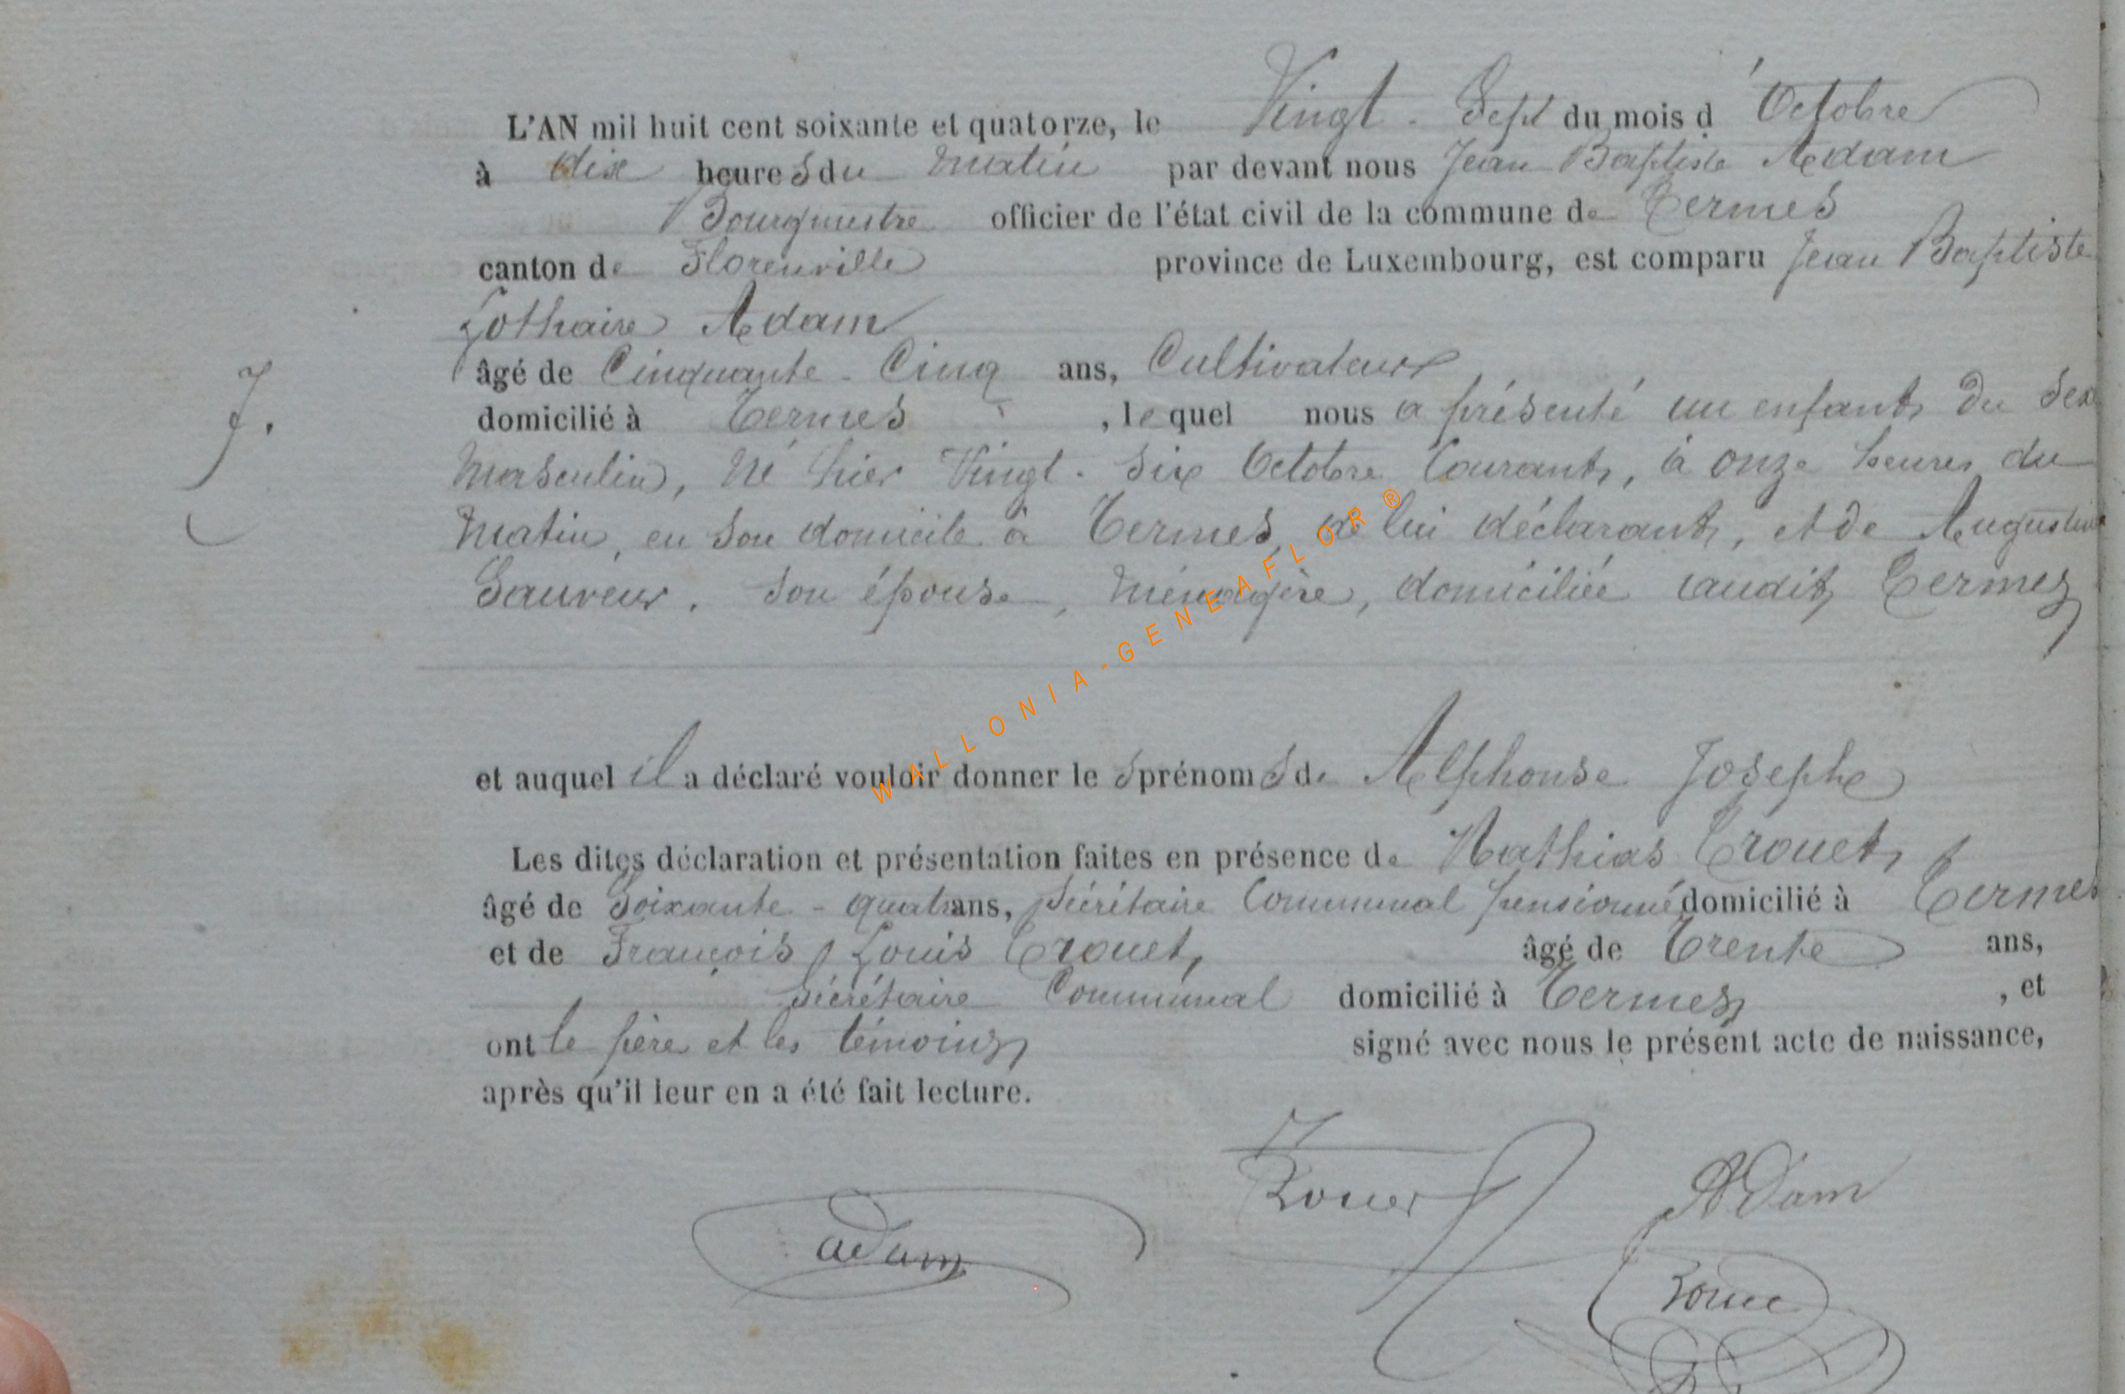 L'AN mil huit cent soixante et quatorze, le Vingt-Sept du mois d'Octobre
à dix heures du matin par devant nous Jean Baptiste Adam
Bourgmestre officier de l'état civil de la commune de Termes
canton de Florenville province de Luxembourg, est comparu Jean Baptiste
Lothaire Adam
âgé de Cinquante-Cinq ans, Cultivateur
domicilié à Termes, lequel nous a présenté un enfant du Sexe
Masculin, né hier Vingt-Six Octobre Courant, à onze heures du
Matin, en son domicile à Termes, de lui déclarant, et de Augustine
Sauveur, son épouse, ménagère, domiciliée audit Termes
et auquel il a déclaré vouloir donner les prénoms de Alphonse Joseph
Les dites déclaration et présentation faites en présence de Mathias Crouet,
âgé de Soixante-quatre ans, Sécrétaire Communal pensionné domicilié à Termes
et de François Louis Crouet, âgé de Trente ans,
Sécrétaire Communal domicilié à Termes, et
ont le père et les témoins signé avec nous le présent acte de naissance,
après qu'il leur en a été fait lecture.
Adam
adam
7.
WALLONIA-GENEAFLOR®